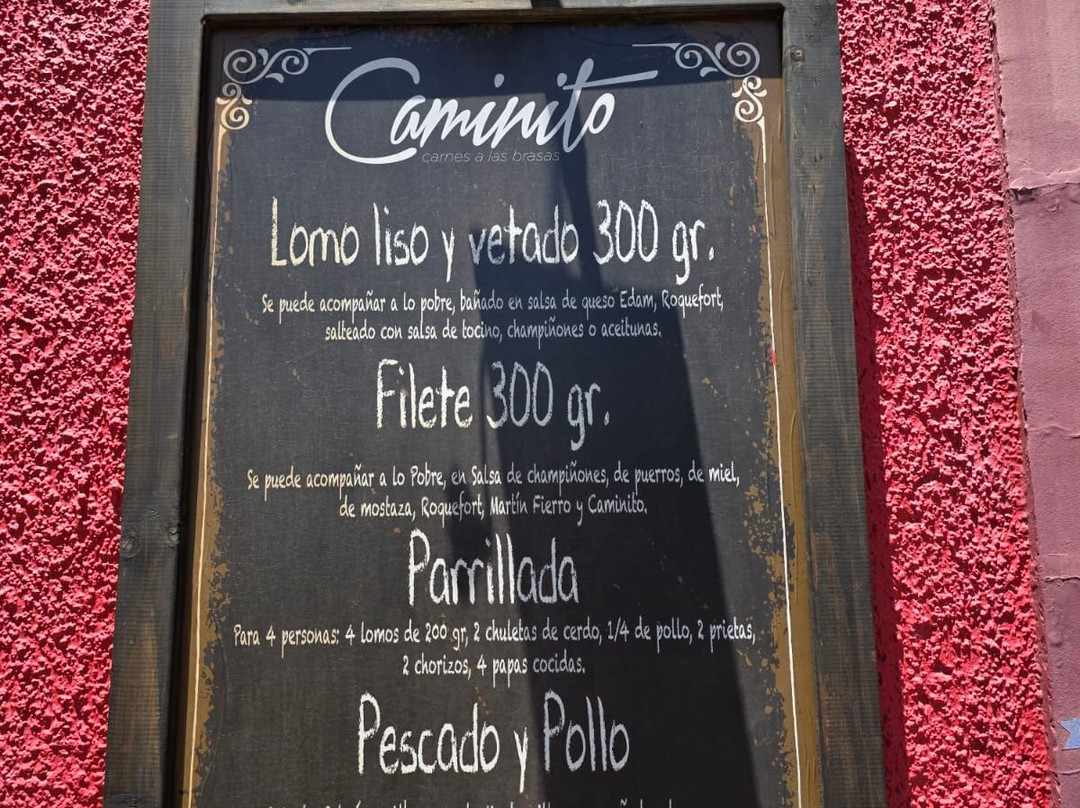 Caminito
carnes a las brasas
Lomo liso y vetado 300 gr.
Se puede acompañar a lo pobre, bañado en salsa de queso Edam, Roquefort,
salteado con salsa de tocino, champiñones o aceitunas.
Filete 300 gr.
Se puede acompañar a lo Pobre, en Salsa de champiñones, de puerros, de miel,
de mostaza, Roquefort, Martín Fierro y Caminito.
Parrillada
Para 4 personas: 4 lomos de 200 gr, 2 chuletas de cerdo, 1/4 de pollo, 2 prietas,
2 chorizos, 4 papas cocidas.
Pescado y Pollo